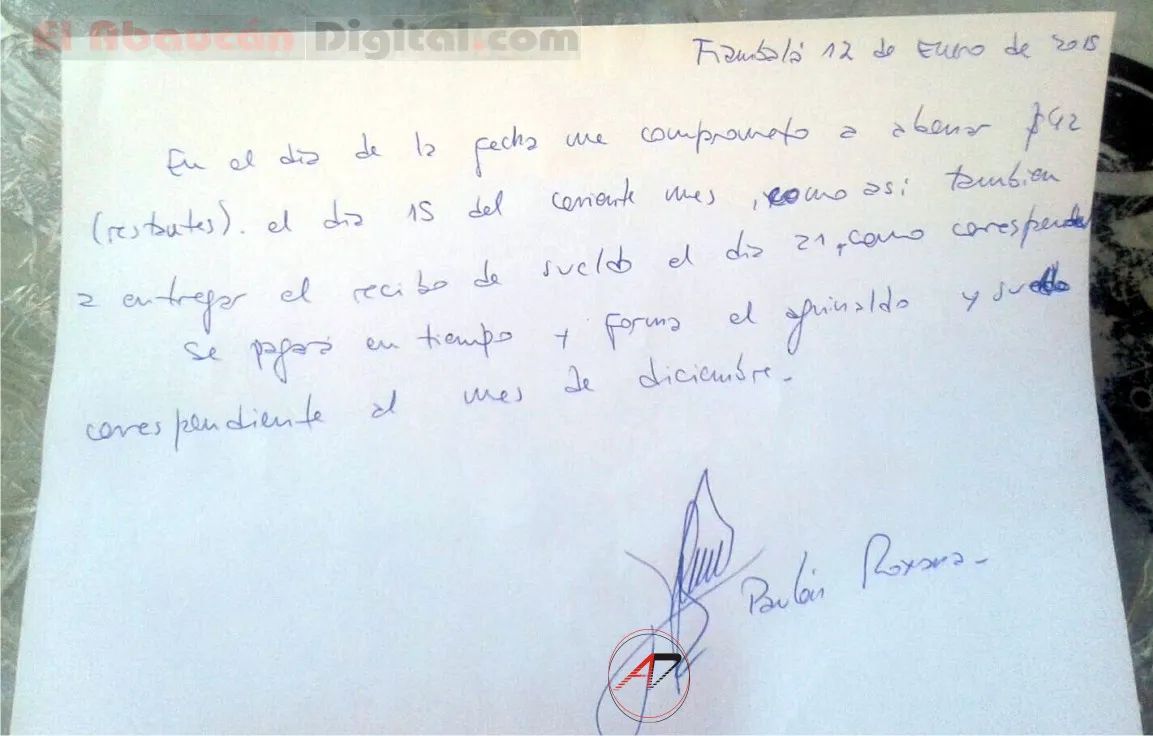 El Abaucán Digital.com
Fiambalá 12 de Enero de 2015
En el día de la fecha me comprometo a abonar $42
(restantes). el día 15 del corriente mes, como asi tambien
a entregar el recibo de sueldo el día 21, como corresponde
Se pagará en tiempo y forma el aguinaldo y sueldo
correspondiente al mes de diciembre.
Roxana
AD